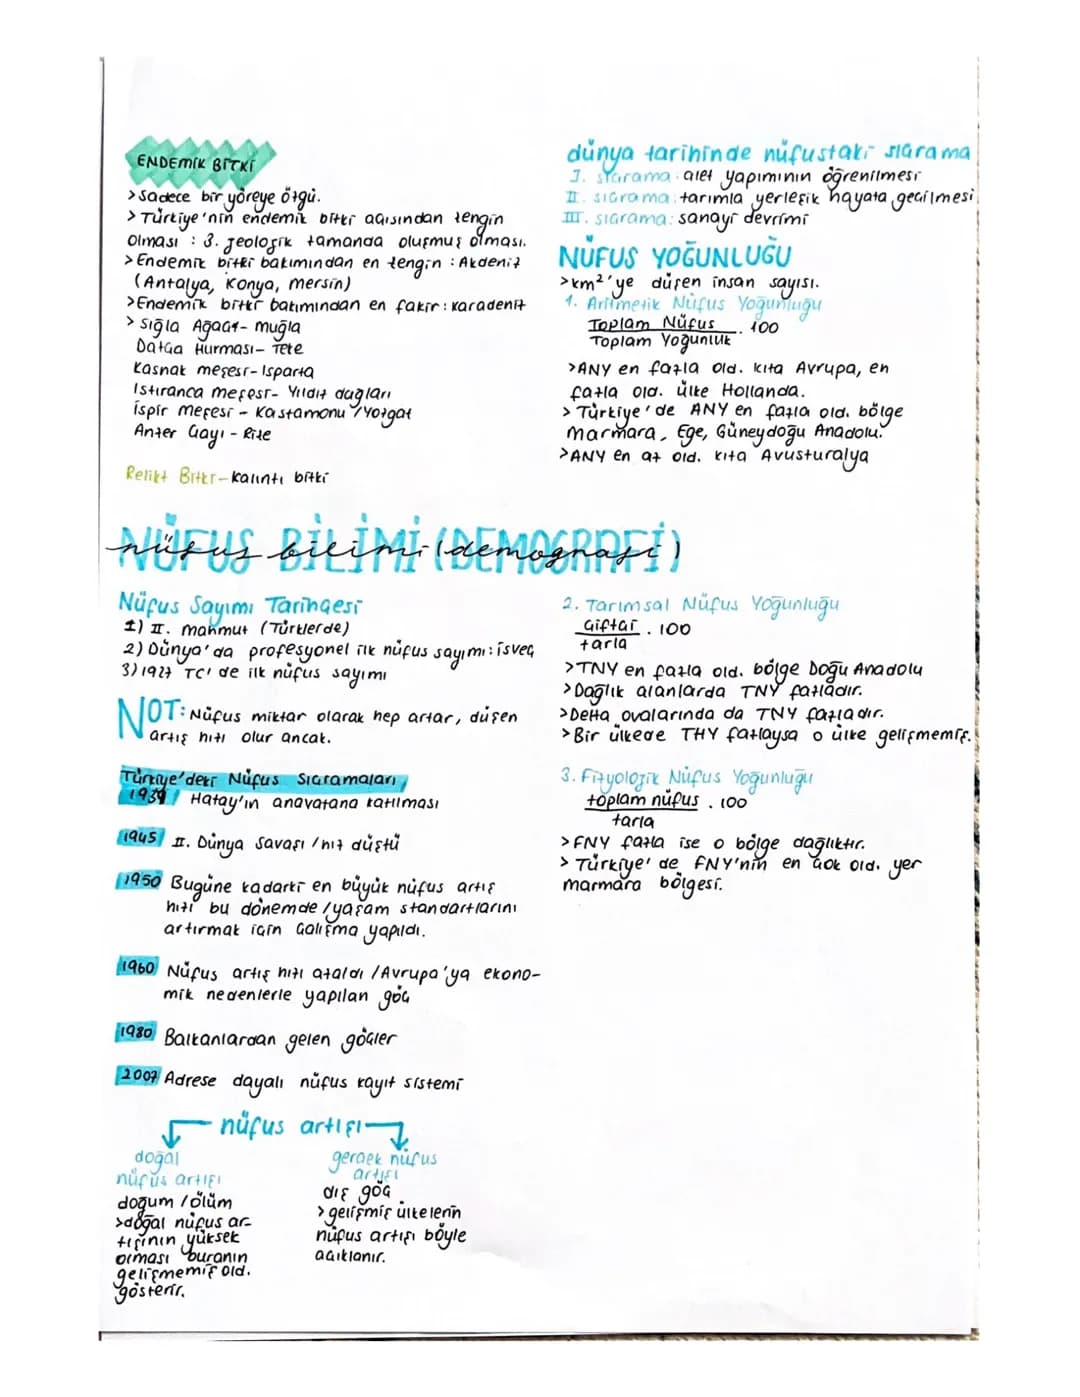 ENDEMİK BİTKİ
>Sadece bir yöreye özgü.
>Türkiye'nin endemik bitki açısından zengin
olması : 3. jeolojik zamanda oluşmuş olması.
>Endemik bitki bakımından en zengin : Akdeniz
(Antalya, Konya, Mersin)
>Endemik bitki bakımından en fakir : Karadeniz
> Sığla Ağacı- Muğla
Datça Hurması- Teke
Kasnak meşesi- Isparta
Istıranca meşesi- Yıldız dağları
İspir meşesi - Kastamonu / Yozgat
Anzer Çayı - Rize
Relikt Bitki- kalıntı bitki
dünya tarihinde nüfustaki sıçrama
I. sıçrama: alet yapımının öğrenilmesi
II. sıçrama: tarımla yerleşik hayata geçilmesi
III. sıçrama: sanayi devrimi
NÜFUS YOĞUNLUĞU
>km²'ye düşen insan sayısı.
1. Aritmetik Nüfus Yoğunluğu
Toplam Nüfus . 100
Toplam Yoğunluk
>ANY en fazla old. kıta Avrupa, en
fazla old. ülke Hollanda.
> Türkiye'de ANY en fazla old. bölge
Marmara, Ege, Güneydoğu Anadolu.
>ANY en az old. kıta Avusturalya
NÜFUS BİLİMİ (DEMOGRAFİ)
nüfus bilimi (demografi)
Nüfus Sayımı Tarihçesi
1) II. Mahmut (Türklerde)
2) Dünya'da profesyonel ilk nüfus sayımı: İsveç
3) 1927 TC'de ilk nüfus sayımı
NOT: Nüfus miktar olarak hep artar, düşen
artış hızı olur ancak.
Türkiye'deki Nüfus Sıçramaları
1939 / Hatay'ın anavatana katılması
1945 / II. Dünya Savaşı / hız düştü
1950 Bugüne kadarki en büyük nüfus artış
hızı bu dönemde / yaşam standartlarını
artırmak için çalışma yapıldı.
1960 Nüfus artış hızı azaldı / Avrupa'ya ekono-
mik nedenlerle yapılan göç
1980 Balkanlardan gelen göçler
2007 Adrese dayalı nüfus kayıt sistemi
nüfus artışı
doğal
nüfus artışı
doğum / ölüm
>doğal nüfus ar-
tışının yüksek
olması buranın
gelişmemiş old.
gösterir.
gerçek nüfus
artışı
dış göç
> gelişmiş ülkelerin
nüfus artışı böyle
açıklanır.
2. Tarımsal Nüfus Yoğunluğu
Çiftçi . 100
tarla
>TNY en fazla old. bölge Doğu Anadolu
>Dağlık alanlarda TNY fazladır.
>Delta ovalarında da TNY fazladır.
>Bir ülkede THY fazlaysa o ülke gelişmemiş.
3. Fizyolojik Nüfus Yoğunluğu
toplam nüfus . 100
tarla
>FNY fazla ise o bölge dağlıktır.
> Türkiye'de FNY'nin en çok old. yer
Marmara bölgesi.